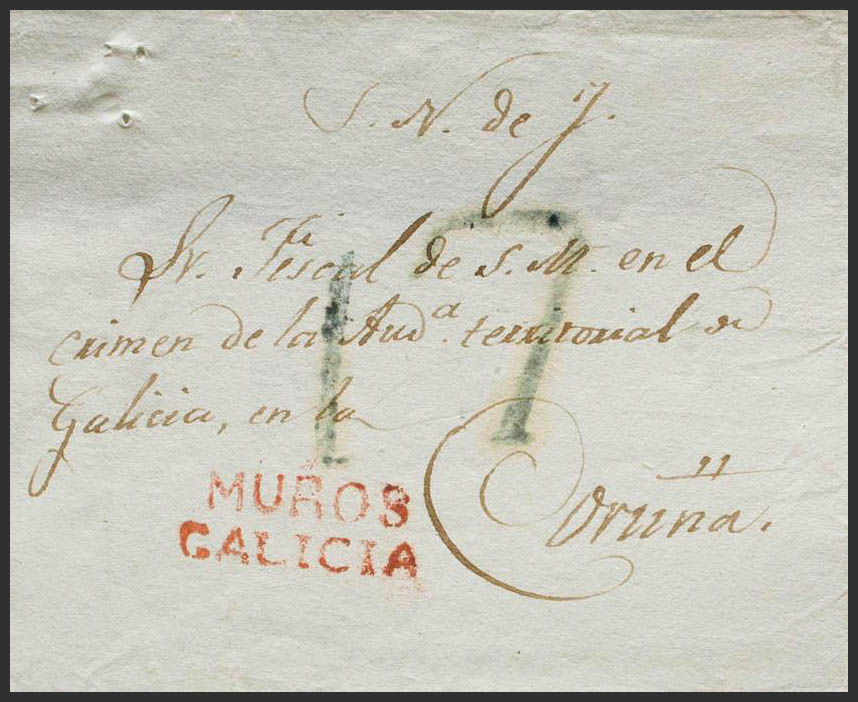 S. N. de J.
Sr. Fiscal de S. M. en el
crimen de la Aud.ª territorial de
Galicia, en la
Coruña.
17
MUROS
GALICIA